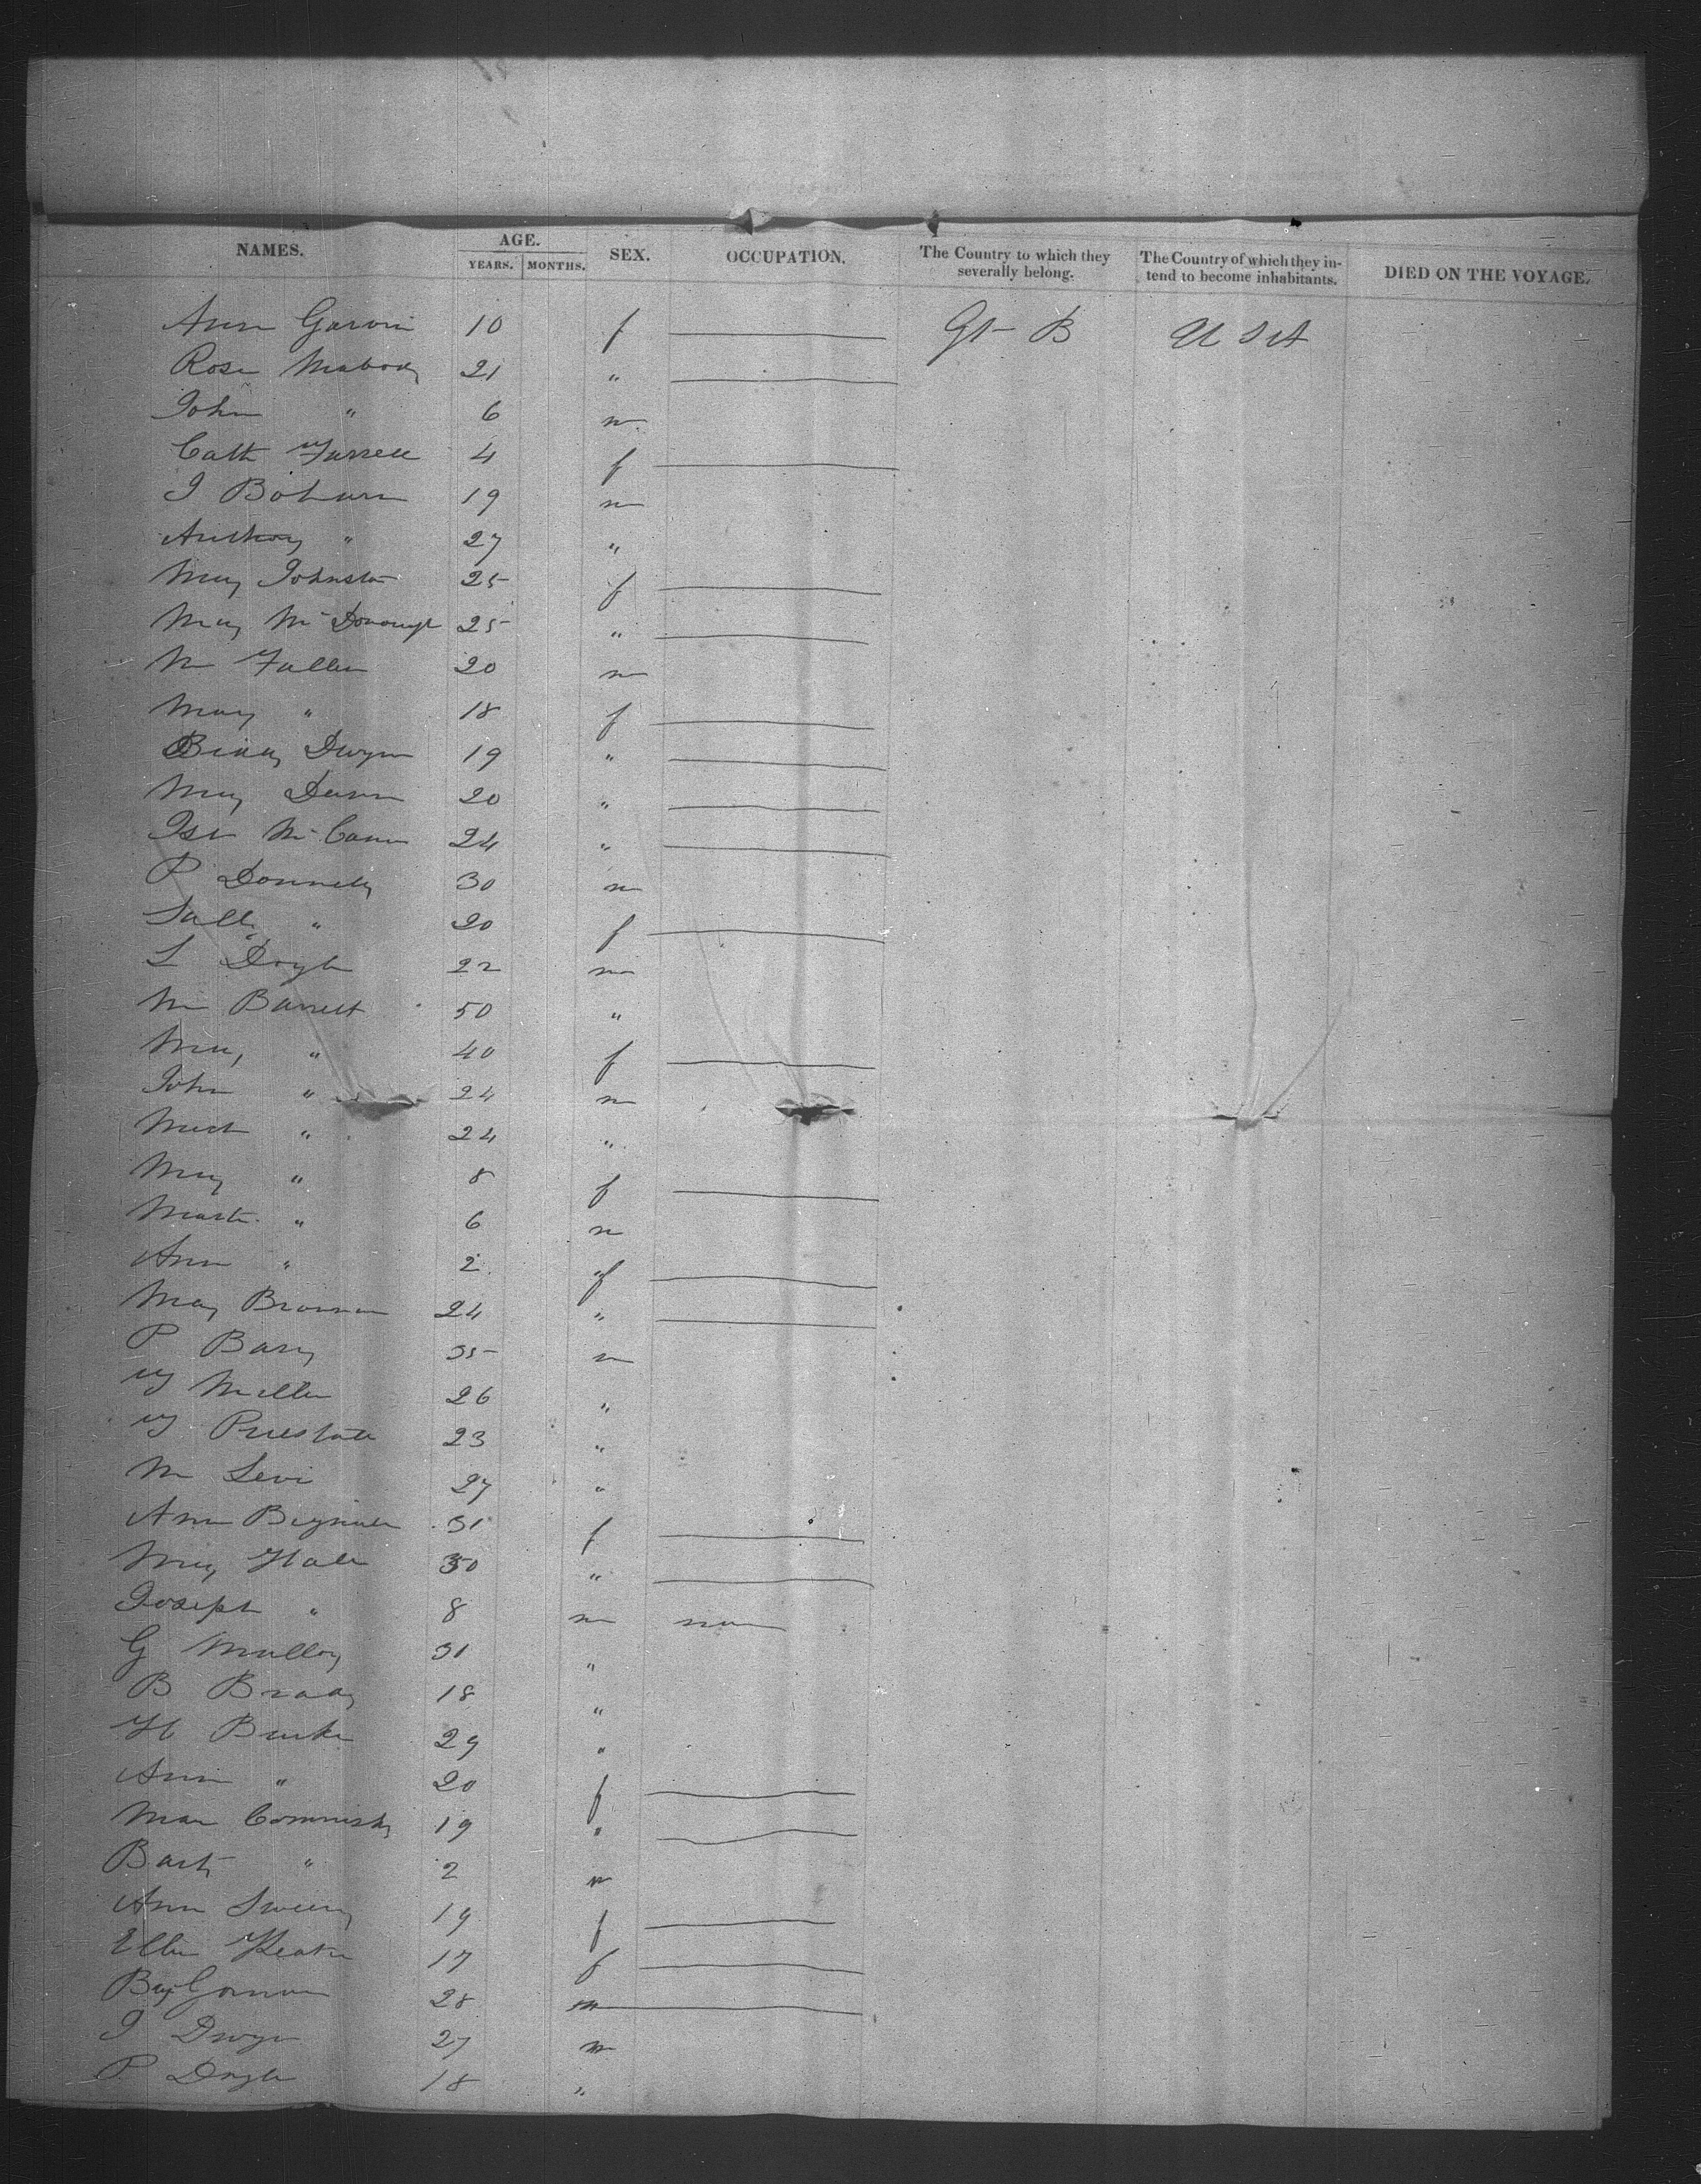 NAMES. AGE. SEX. OCCUPATION. The Country to which they severally belong. The Country of which they intend to become inhabitants. DIED ON THE VOYAGE.
YEARS. MONTHS.
Ann Garvin 10 f Gt B U S A
Rose 21 "
John " 6 m
Cath Farrell 4 f
J 19 m
Anthony " 27 "
Mary Johnston 25 f
Mary McDonough 25 "
M Fallen 20 m
Mary " 18 f
Biddy Dwyer 19 "
Mary Dunn 20 "
McCann 24 "
P Donnely 30 m
Sally " 20 f
L Doyle 22 m
M Barrett 50 "
Mary " 40 f
John " 24 m
Mich " 24 "
Mary " 8 f
Mart. " 6 m
Ann " 2 f
Mary 24 "
P Bary 35 m
Wm Miller 26 "
Wm 23 "
M Levi 27 "
Ann 31 f
Mary Hale 30 "
Joseph " 8 m
G Mulloy 31 "
B Brady 18 "
H Burke 29 "
Ann " 20 f
Mar 19 "
Bart " 2 m
Ann Sweeny 19 f
Ellen 17 f
Gorman 28 m
J Dwyer 27 m
P Doyle 18 "